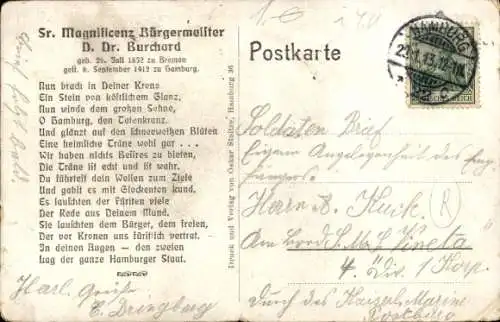 Sr. Magnificenz Bürgermeister
D. Dr. Burchard
geb. 26. Juli 1852 zu Bremen
gest. 6. September 1912 zu Hamburg.
Nun brach in Deiner Krone
Ein Stein von köstlichem Glanz,
Nun winde dem großen Sohne,
O Hamburg, den Totenkranz.
Und glänzt auf den schneeweißen Blüten
Eine heimliche Träne wohl gar . . .
Wir haben nichts Besseres zu bieten,
Die Träne ist echt und ist wahr.
Du führtest dein Wollen zum Ziele
Und gabst es mit Glockenton kund.
Es lauschten der Fürsten viele
Der Rede aus Deinem Mund.
Sie lauschten dem Bürger, dem freien,
Der vor Kronen uns fürstlich vertrat.
In deinen Augen — den zweien
Lag der ganze Hamburger Staat.
Druck und Verlag von Oskar Hamburg 36
Postkarte
HAMBURG
Soldaten Brief
Eigene Angelegenheit des Em
pfängers
Herrn A. Kuck
R
Am Bord S.M.S. Vineta
4. Div. 1 Korp.
Durch das Kaiserl. Marine
Postbüro
Grüße
E. Dringberg